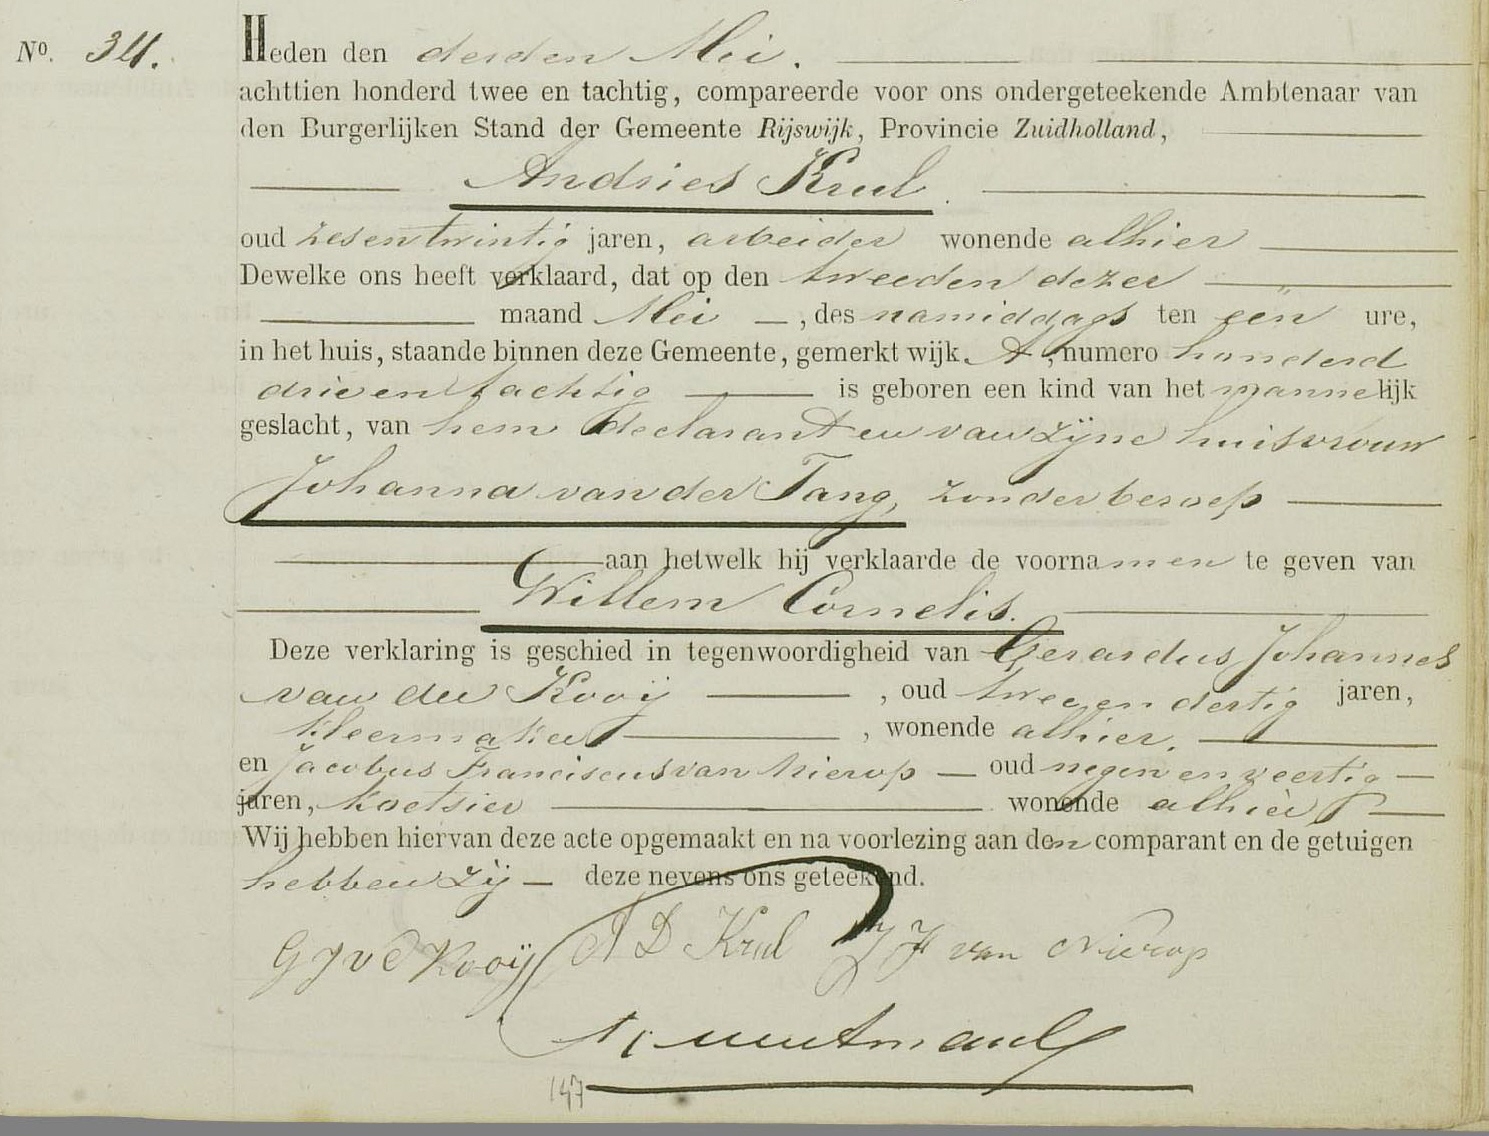 No. 34. Heden den derden Mei.
achttien honderd twee en tachtig, compareerde voor ons ondergeteekende Ambtenaar van
den Burgerlijken Stand der Gemeente Rijswijk, Provincie Zuidholland,
Andries Krul.
oud zesentwintig jaren, arbeider wonende alhier
Dewelke ons heeft verklaard, dat op den tweeden dezer
maand Mei, des namiddags ten een ure,
in het huis, staande binnen deze Gemeente, gemerkt wijk A, numero honderd
drie en tachtig is geboren een kind van het mannelijk
geslacht, van hem declarant en van zijne huisvrouw
Johanna van der Tang, zonder beroep
aan hetwelk hij verklaarde de voornamen te geven van
Willem Cornelis.
Deze verklaring is geschied in tegenwoordigheid van Gerardus Johannes
van der Kooij, oud twee en dertig jaren,
kleermaker, wonende alhier.
en Jacobus Franciscus van Nierop oud negen en veertig
jaren, koetsier wonende alhier
Wij hebben hiervan deze acte opgemaakt en na voorlezing aan den comparant en de getuigen
hebben zij deze nevens ons geteekend.
G J v d Kooij A D Krul J F van Nierop
147